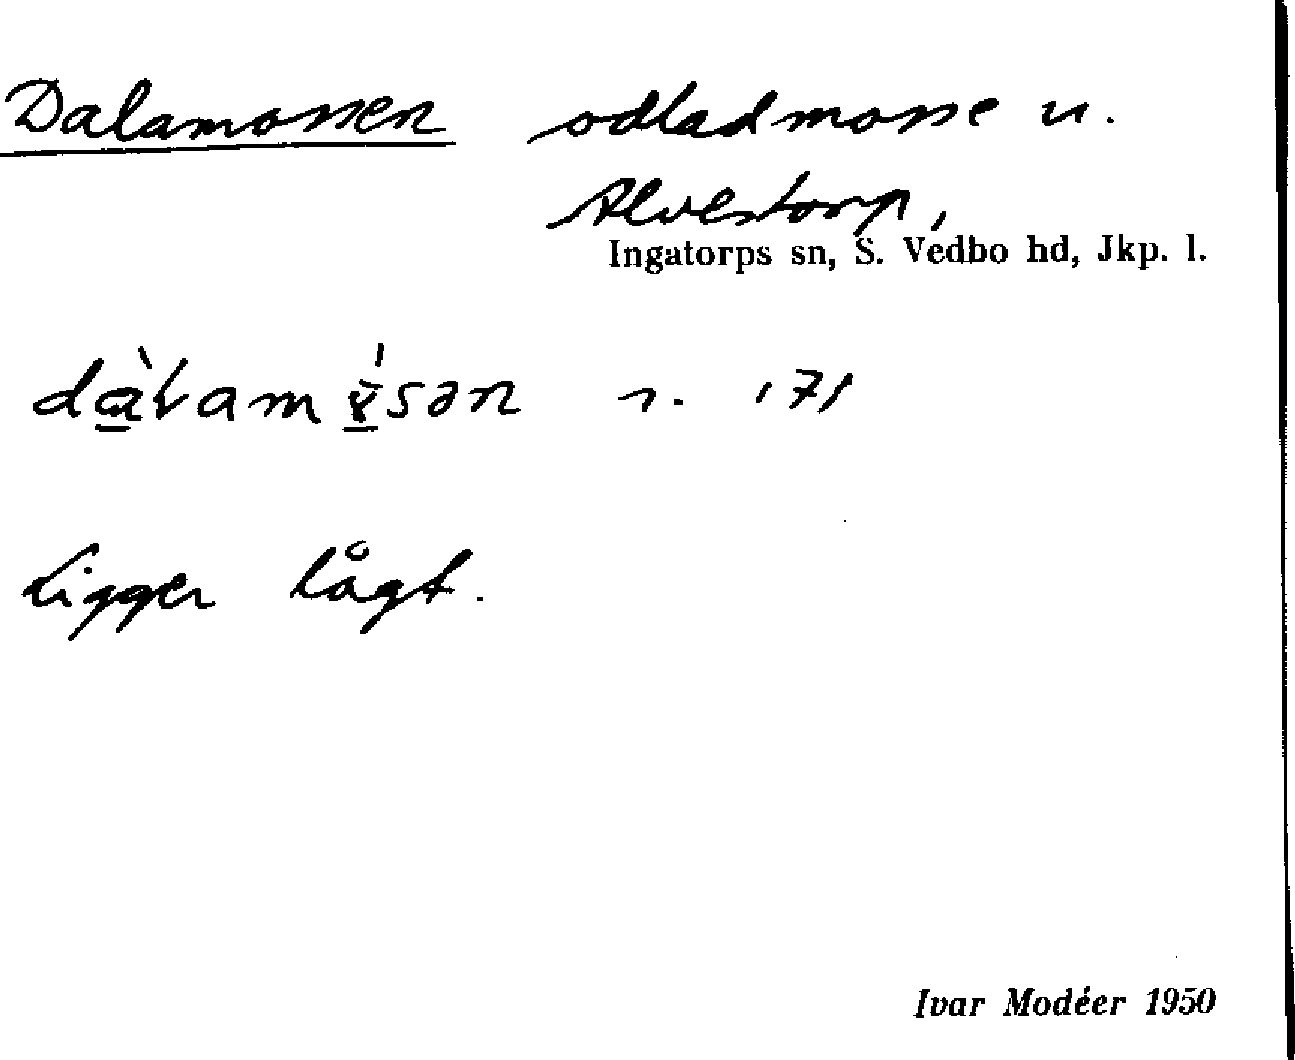 Dalamossen odlad mosse u.
Alvestorp,
Ingatorps sn, S. Vedbo hd, Jkp. l.
n. 171
Ligger lågt.
Ivar Modéer 1950